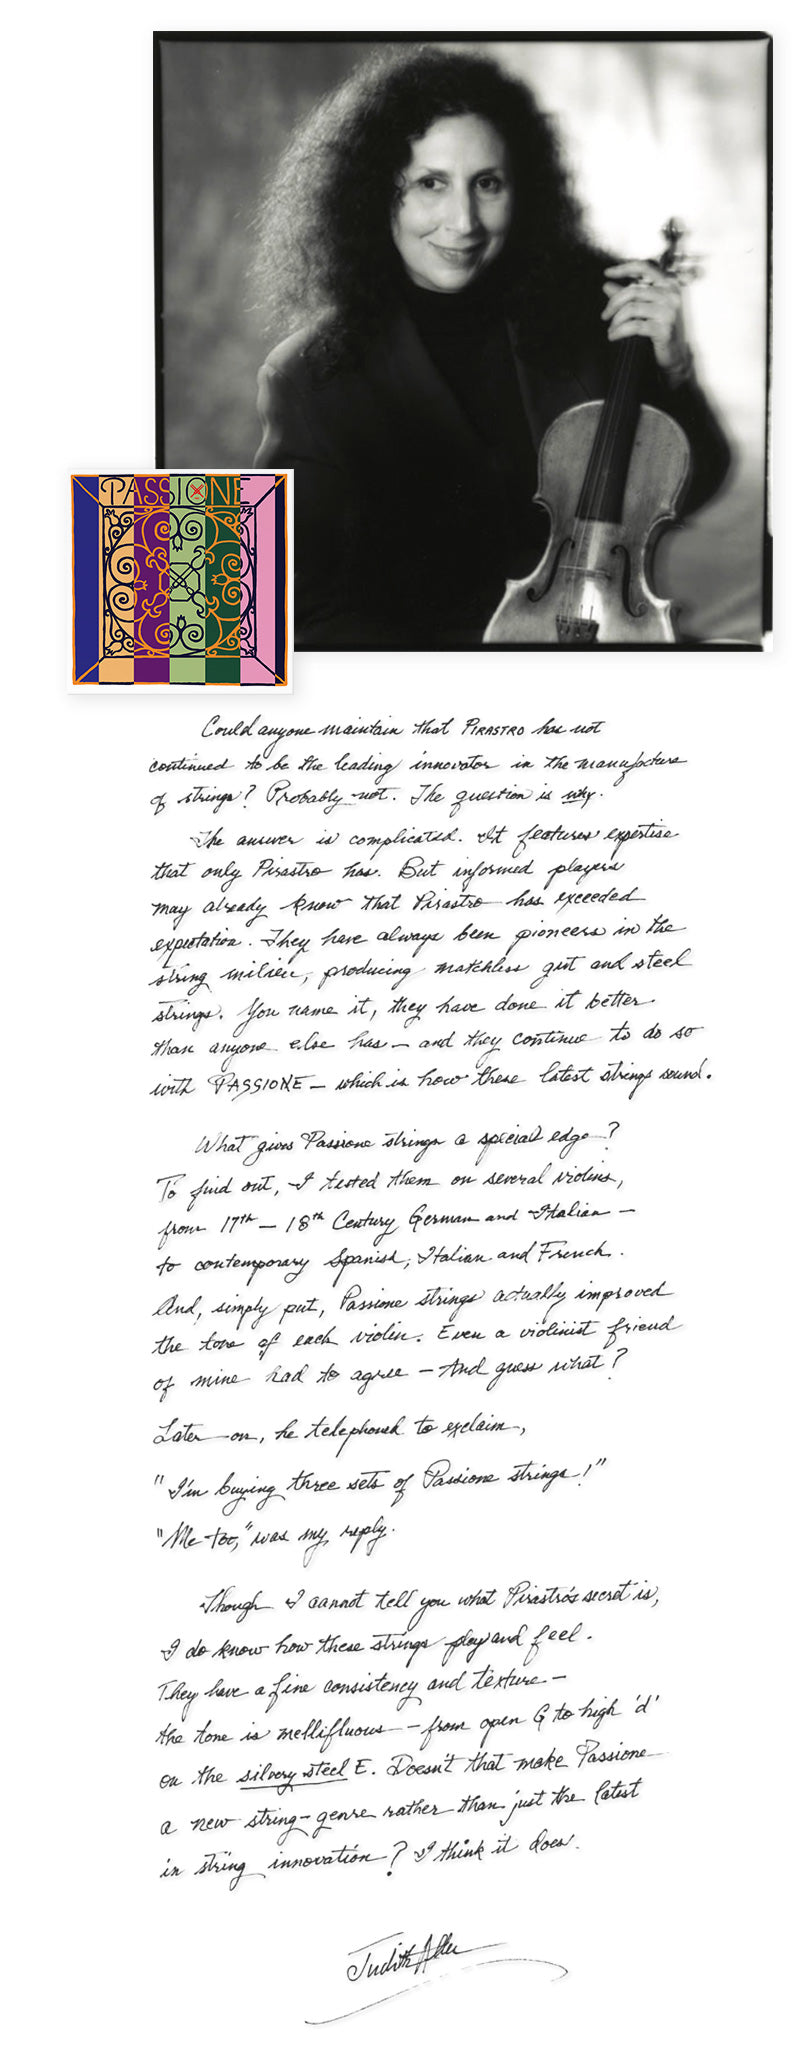 PASSIONE
Could anyone maintain that PIRASTRO has not
continued to be the leading innovator in the manufacture
of strings? Probably not. The question is why.
The answer is complicated. It features expertise
that only Pirastro has. But informed players
may already know that Pirastro has exceeded
expectation. They have always been pioneers in the
string milieu, producing matchless gut and steel
strings. You name it, they have done it better
than anyone else has — and they continue to do so
with PASSIONE — which is how these latest strings sound.
What gives Passione strings a special edge?
To find out, I tested them on several violins,
from 17th — 18th Century German and Italian —
to contemporary Spanish, Italian and French.
And, simply put, Passione strings actually improved
the tone of each violin. Even a violinist friend
of mine had to agree — And guess what?
Later on, he telephoned to exclaim,
"I'm buying three sets of Passione strings!"
"Me too," was my reply.
Though I cannot tell you what Pirastro's secret is,
I do know how these strings play and feel.
They have a fine consistency and texture —
the tone is mellifluous — from open G to high 'd'
on the silvery steel E. Doesn't that make Passione
a new string-genre rather than just the latest
in string innovation? I think it does.
Judith Aller